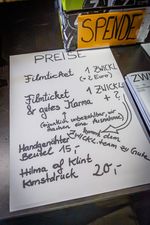 SPENDE
PREISE
Filmticket 1 ZWICKL
(= 2 Euro)
Filmticket 1 ZWICKL
& gutes Karma + ?
(eigentlich unbezahlbar, wir
machen eine Ausnahme)
kommt dem
Handgenähter ZWICKL-Team zu Gute
Beutel 15,-
Hilma af Klint
Kunstdruck 20,-
ZW